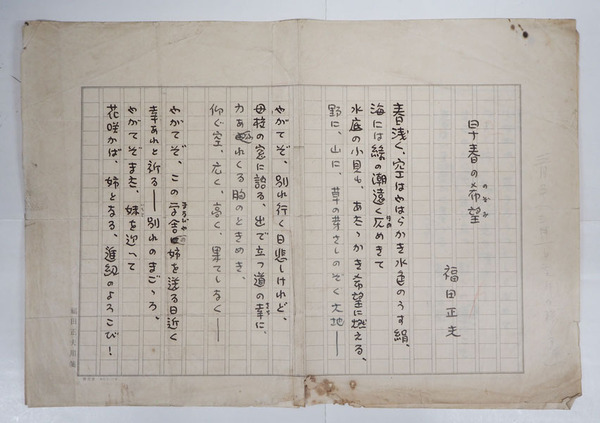 早春の希望
のぞみ
福田正夫
春浅く、空はやはらかき水色のうす絹、
海には緑の潮遠く仄めきて
ほの
水底の小貝も、あたゝかき希望に燃える、
野に、山に、草の芽さしのぞく大地──
やがてぞ、別れ行く日悲しけれど、
母校の窓に語る、出で立つ道の幸に、
さち
力あふれくる胸のときめき、
仰ぐ空、広く、高く、果てしなく──
やがてぞ、この学舎に姉を送る日近く
まなびや
幸あれと祈る──別れのまごゝろ、
やがてぞまた、妹を迎へて
花咲かば、姉となる、進級のよろこび!
福田正夫用箋